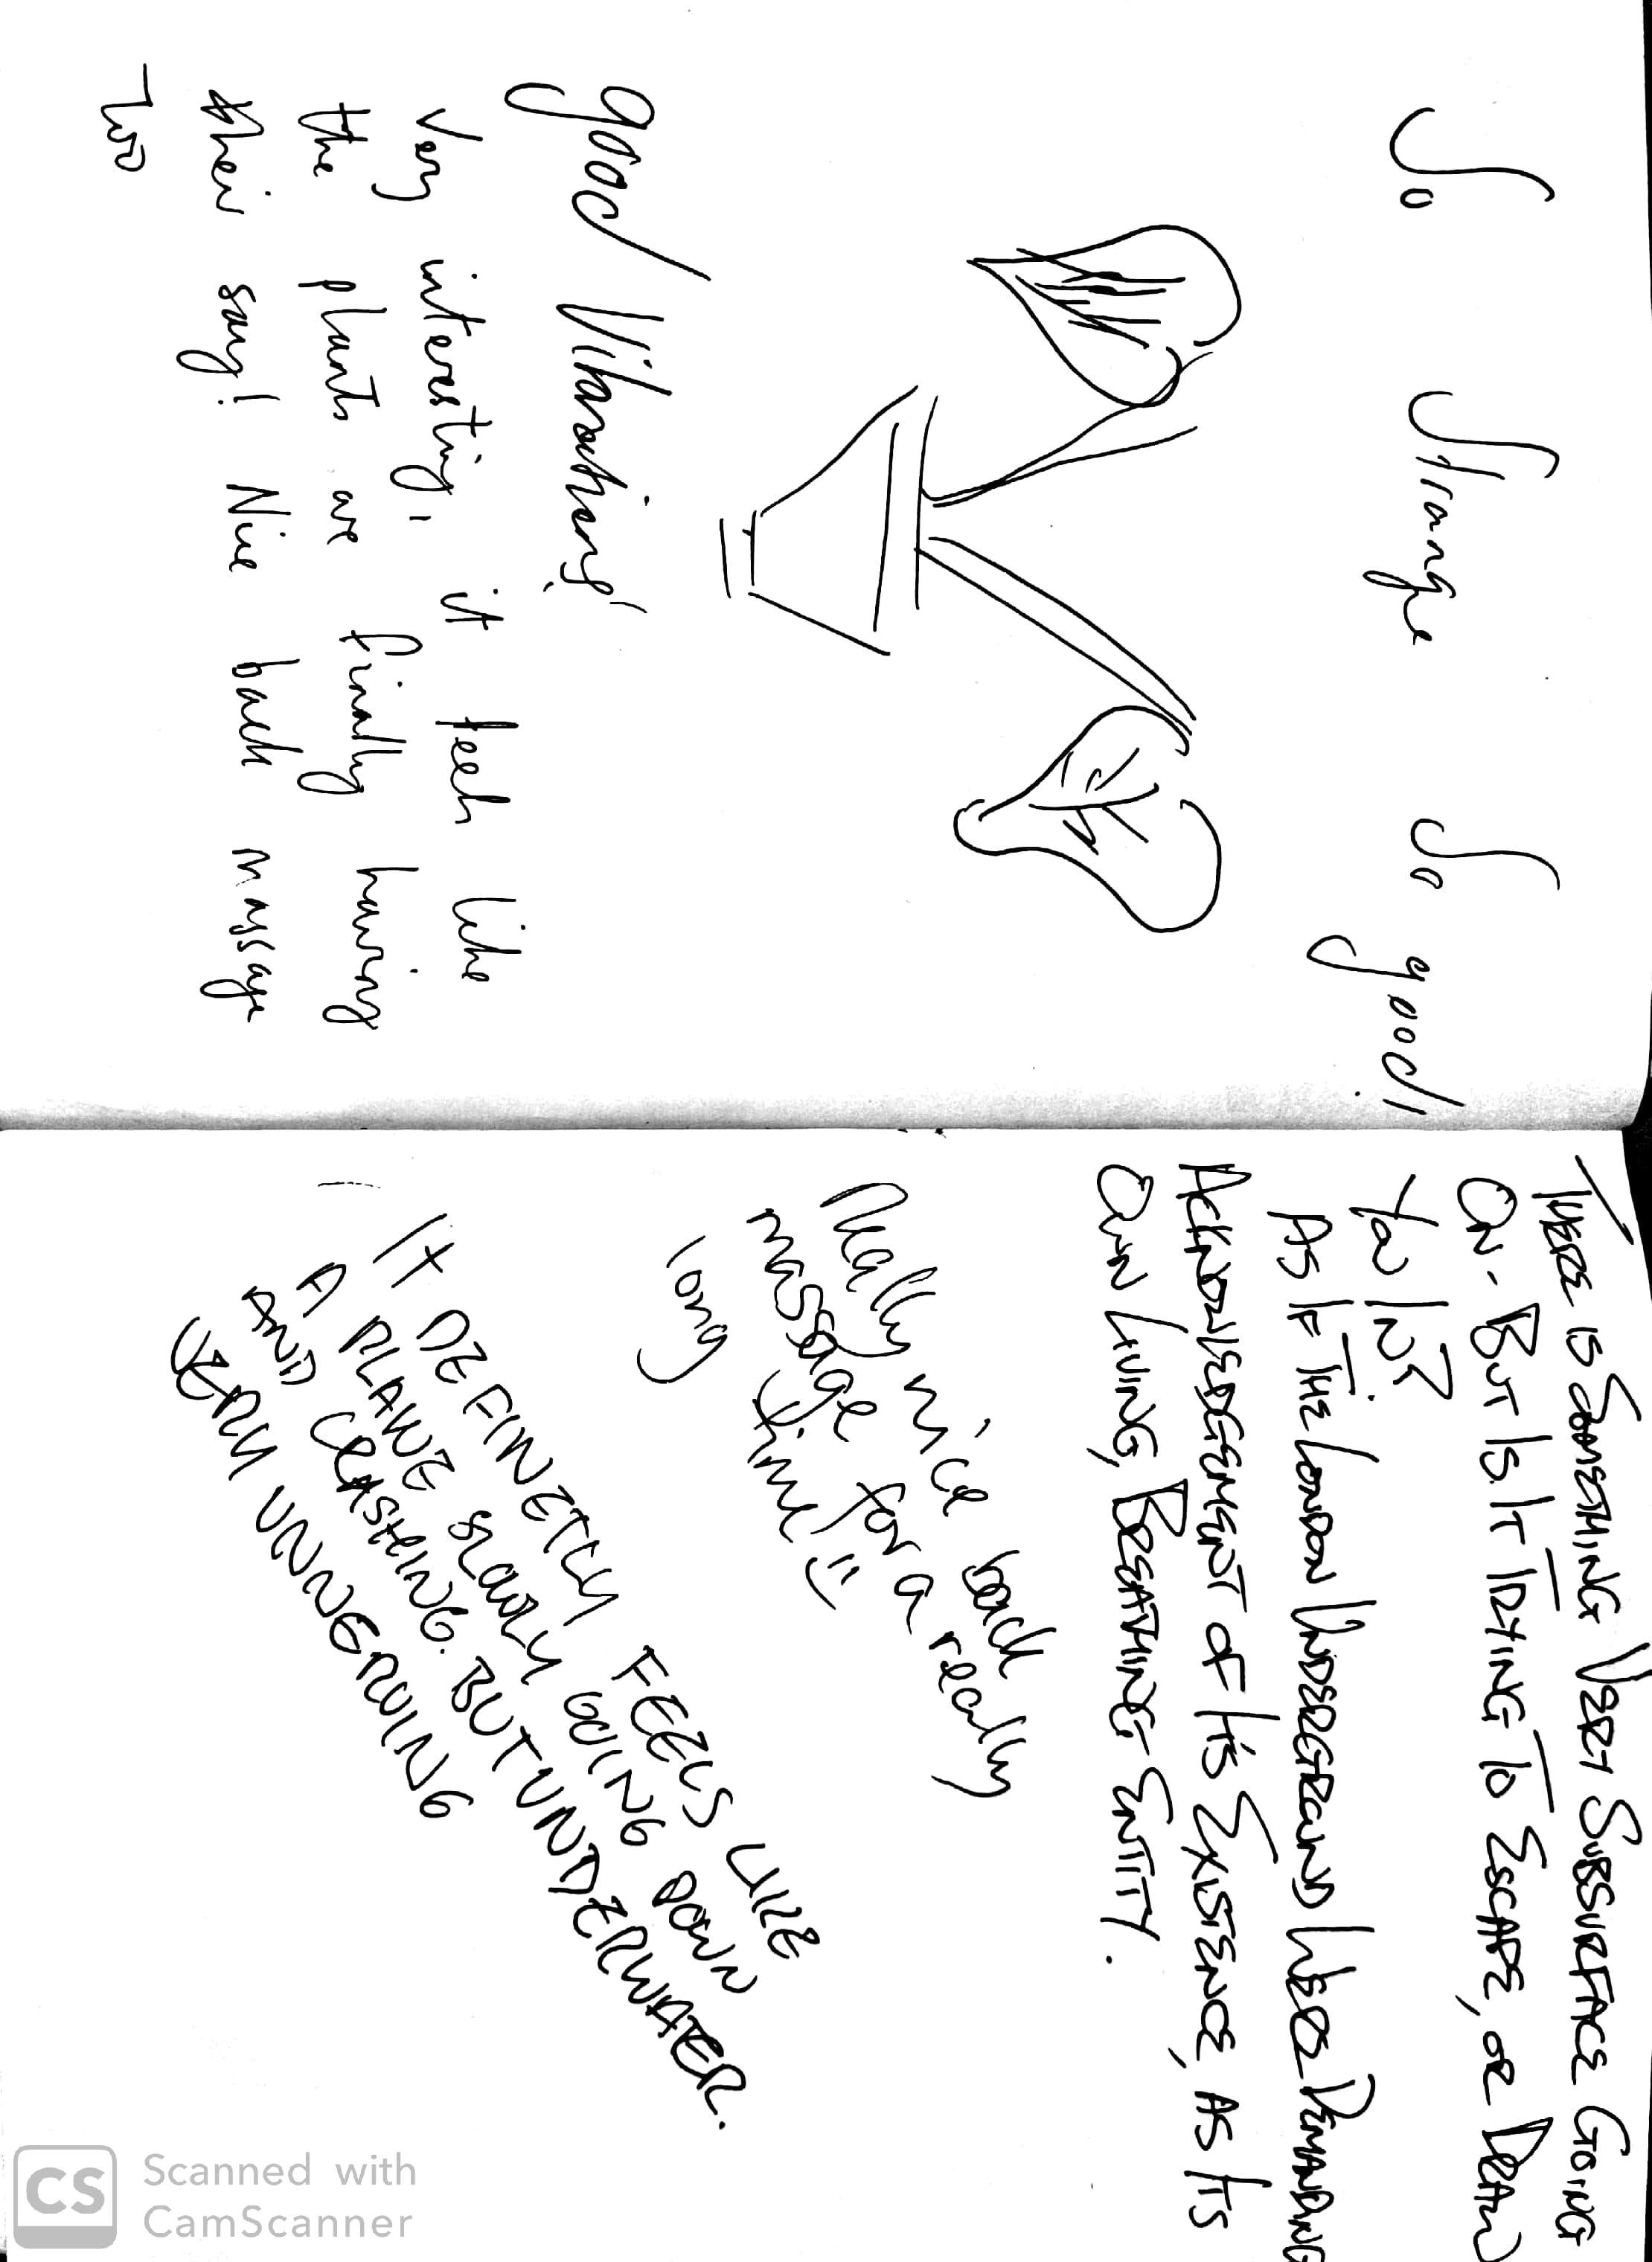 So Strange So good!
good Vibrations!
Very interesting, it feels like
the plants are finally having
their say! Nice back massage
too
THERE IS SOMETHING VERY SUBSURFACE GOING
ON - BUT IS IT TRYING TO ESCAPE, OR DRAW
YOU IN?
AS IF THE LONDON UNDERGROUND WERE DEMANDING
ACKNOWLEDGEMENT OF ITS EXISTENCE, AS ITS
OWN LIVING, BREATHING ENTITY.
Really nice back
massage for a really
long time!!
IT DEFINETLY FEELS LIKE
A PLANE SLOWLY GOING DOWN
AND CRASHING. BUT UNDERWATER.
VERY UNNERVING
CS Scanned with
CamScanner